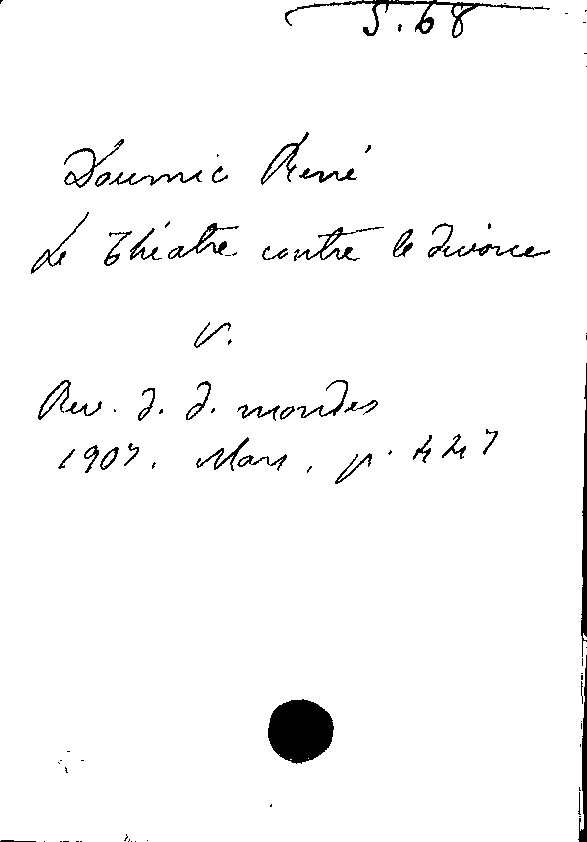 S. 68
Doumic René
Le Théatre contre le divorce
V.
Rev. d. d. mondes
1907. Mars, p. 447